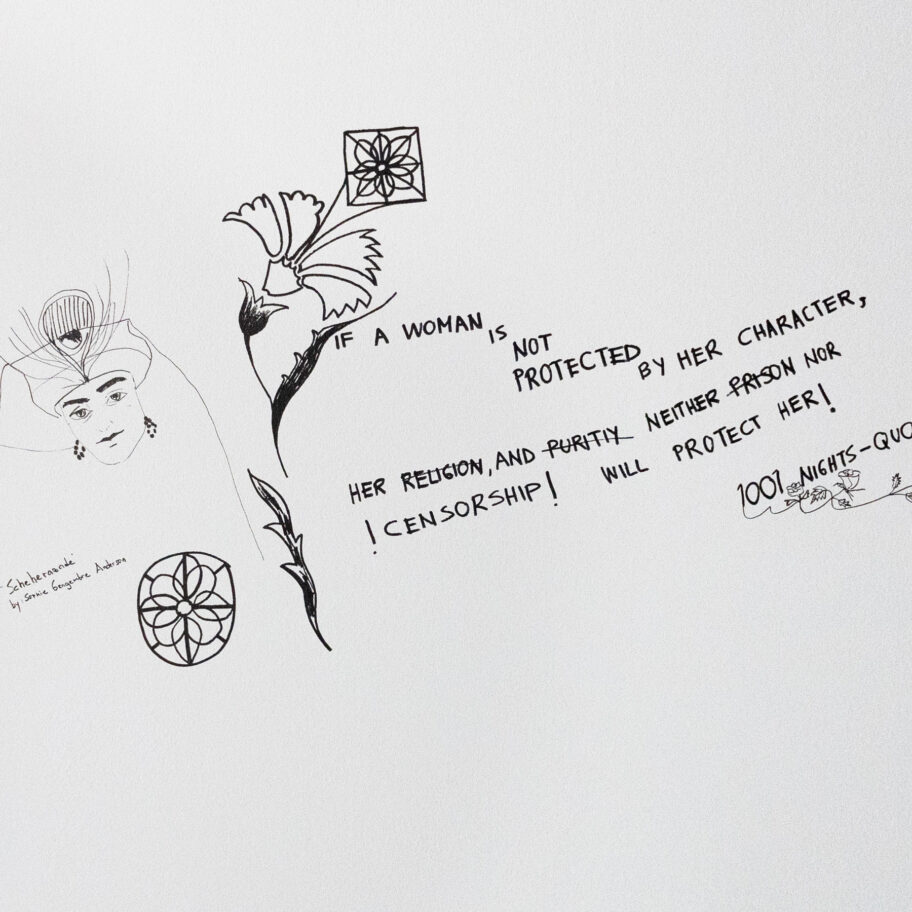 IF A WOMAN IS NOT PROTECTED BY HER CHARACTER,
HER RELIGION, AND PURITIY NEITHER PRISON NOR
! CENSORSHIP! WILL PROTECT HER!
1001 NIGHTS-QUO
Scheherazade
by Sophie Gengembre Anderson